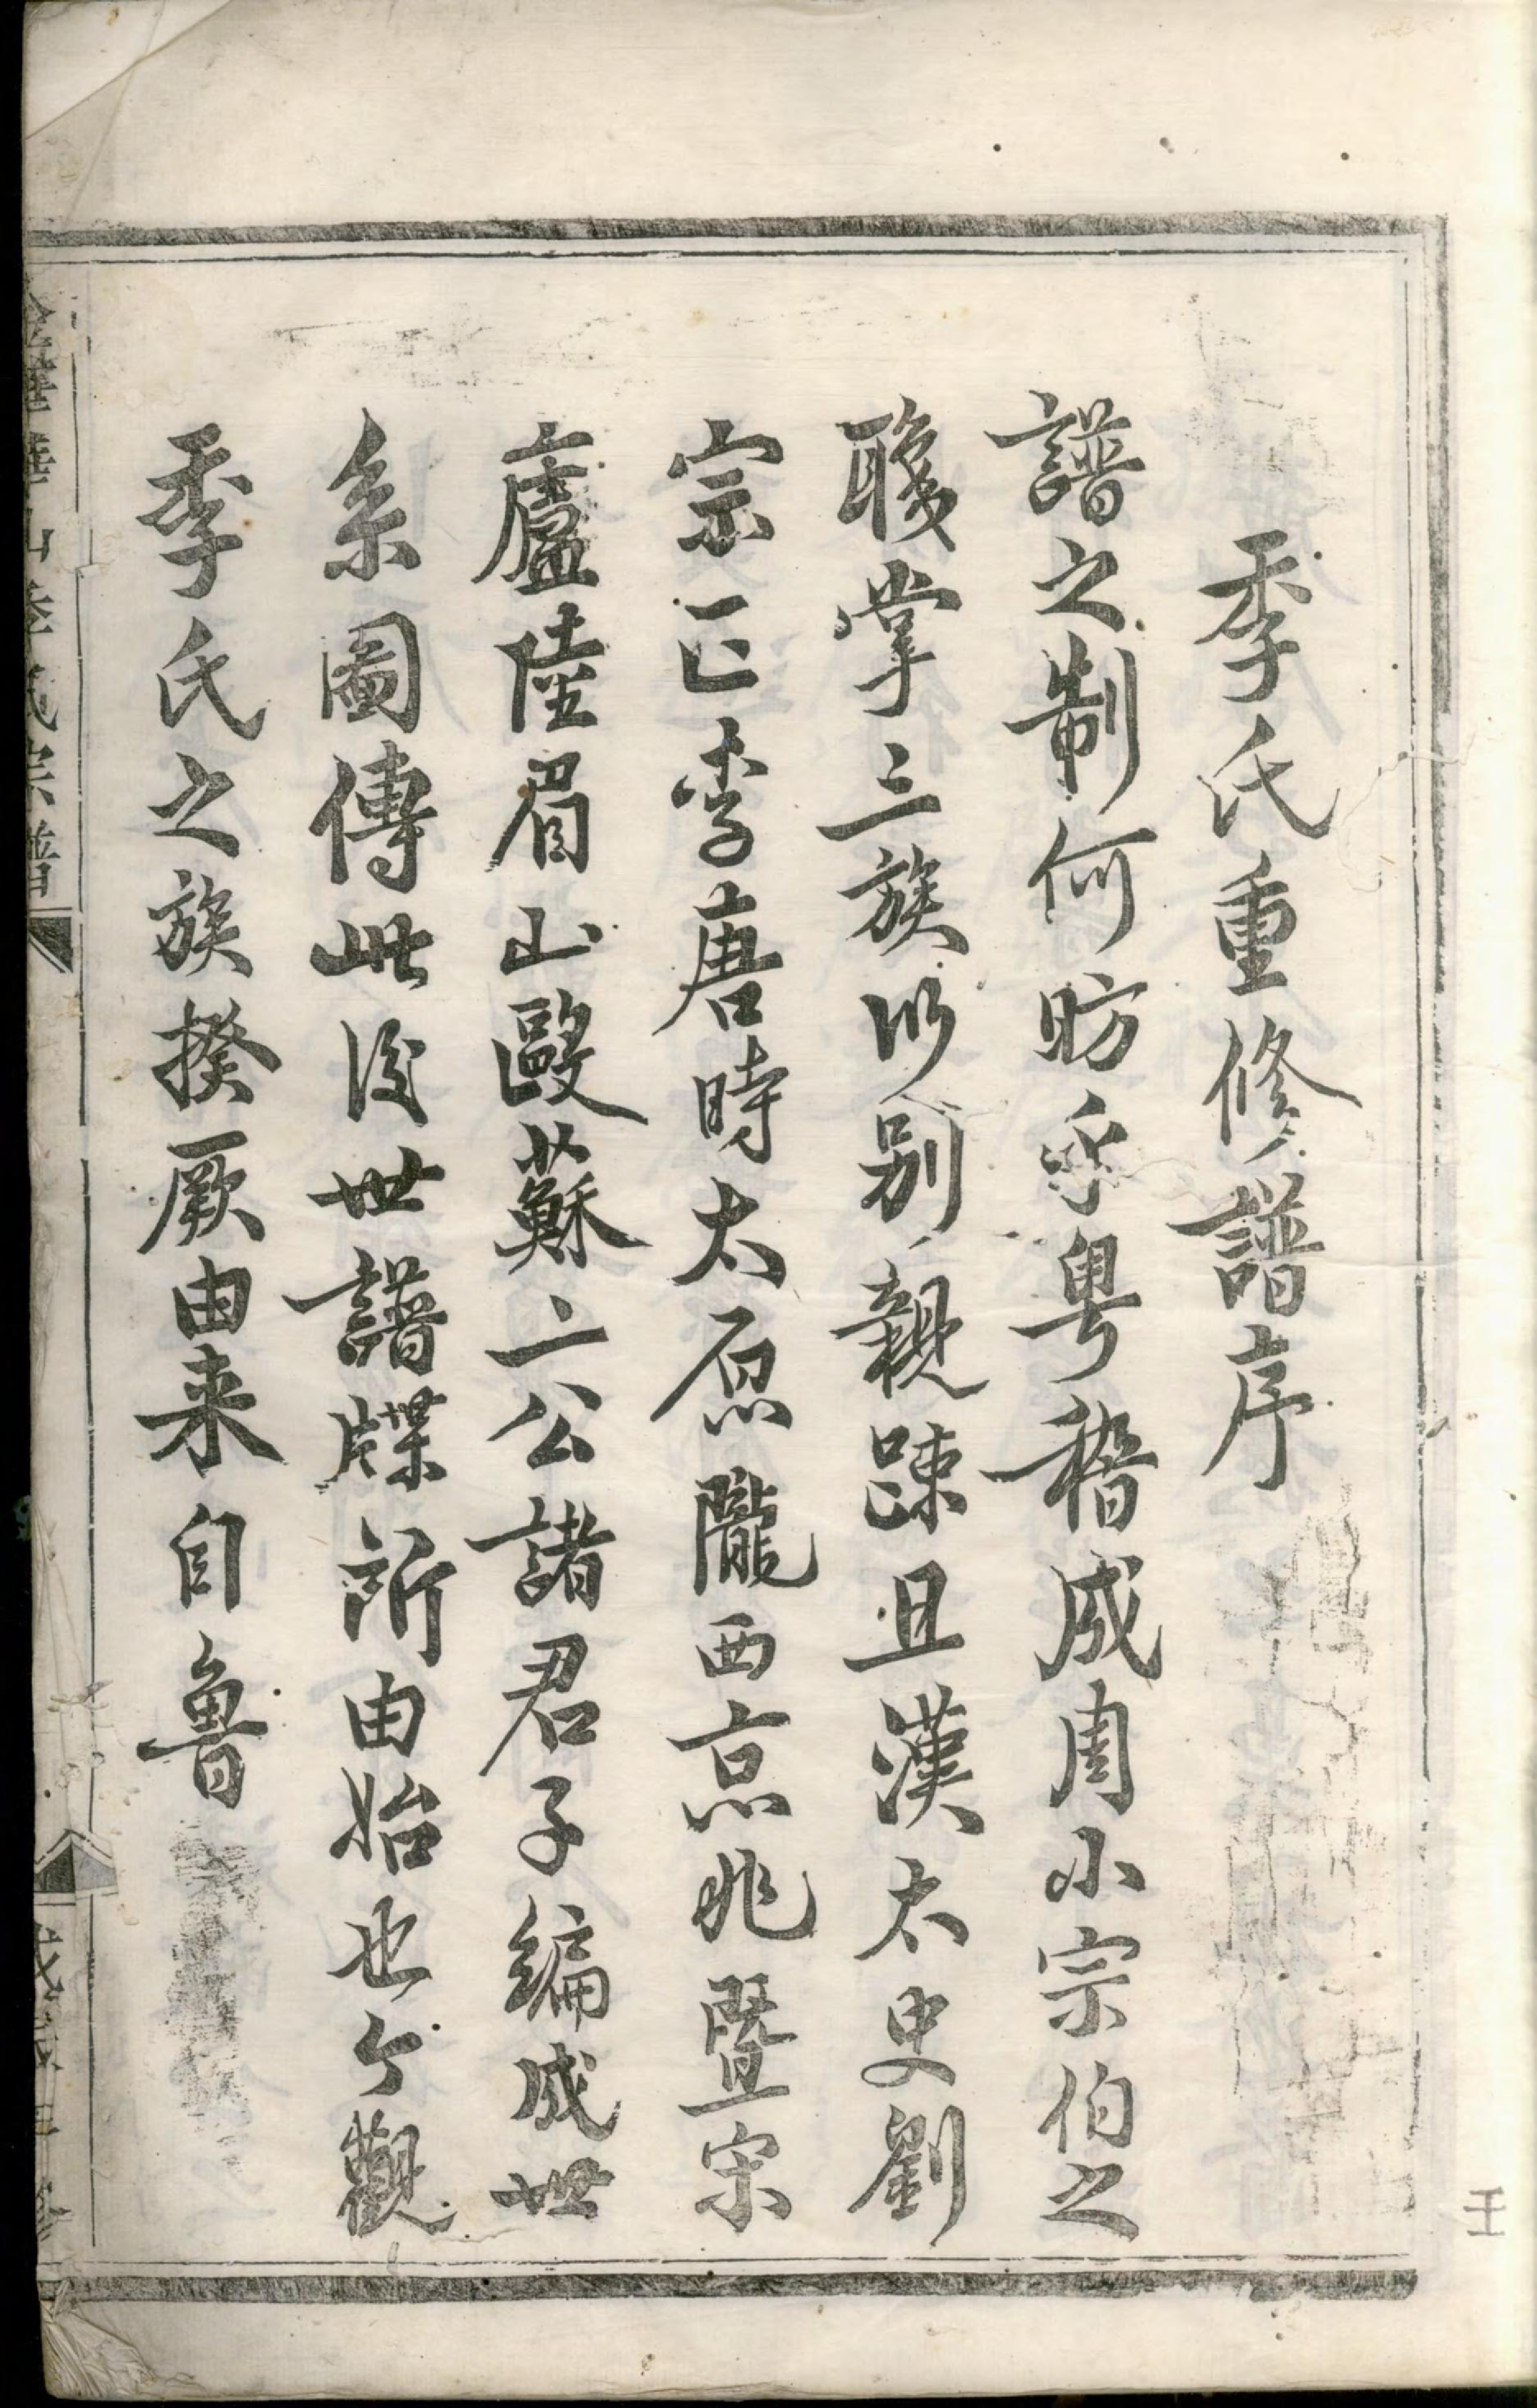 季氏重修譜序
譜之制何昉乎粵稽成周小宗伯之
職掌三族以別親踈且漢太史劉
宗正李唐時太原隴西京兆暨宋
廬陸眉山歐蘇二公諸君子編成世
系圖傳此後世譜牒所由始也今觀
季氏之族揆厥由来自魯